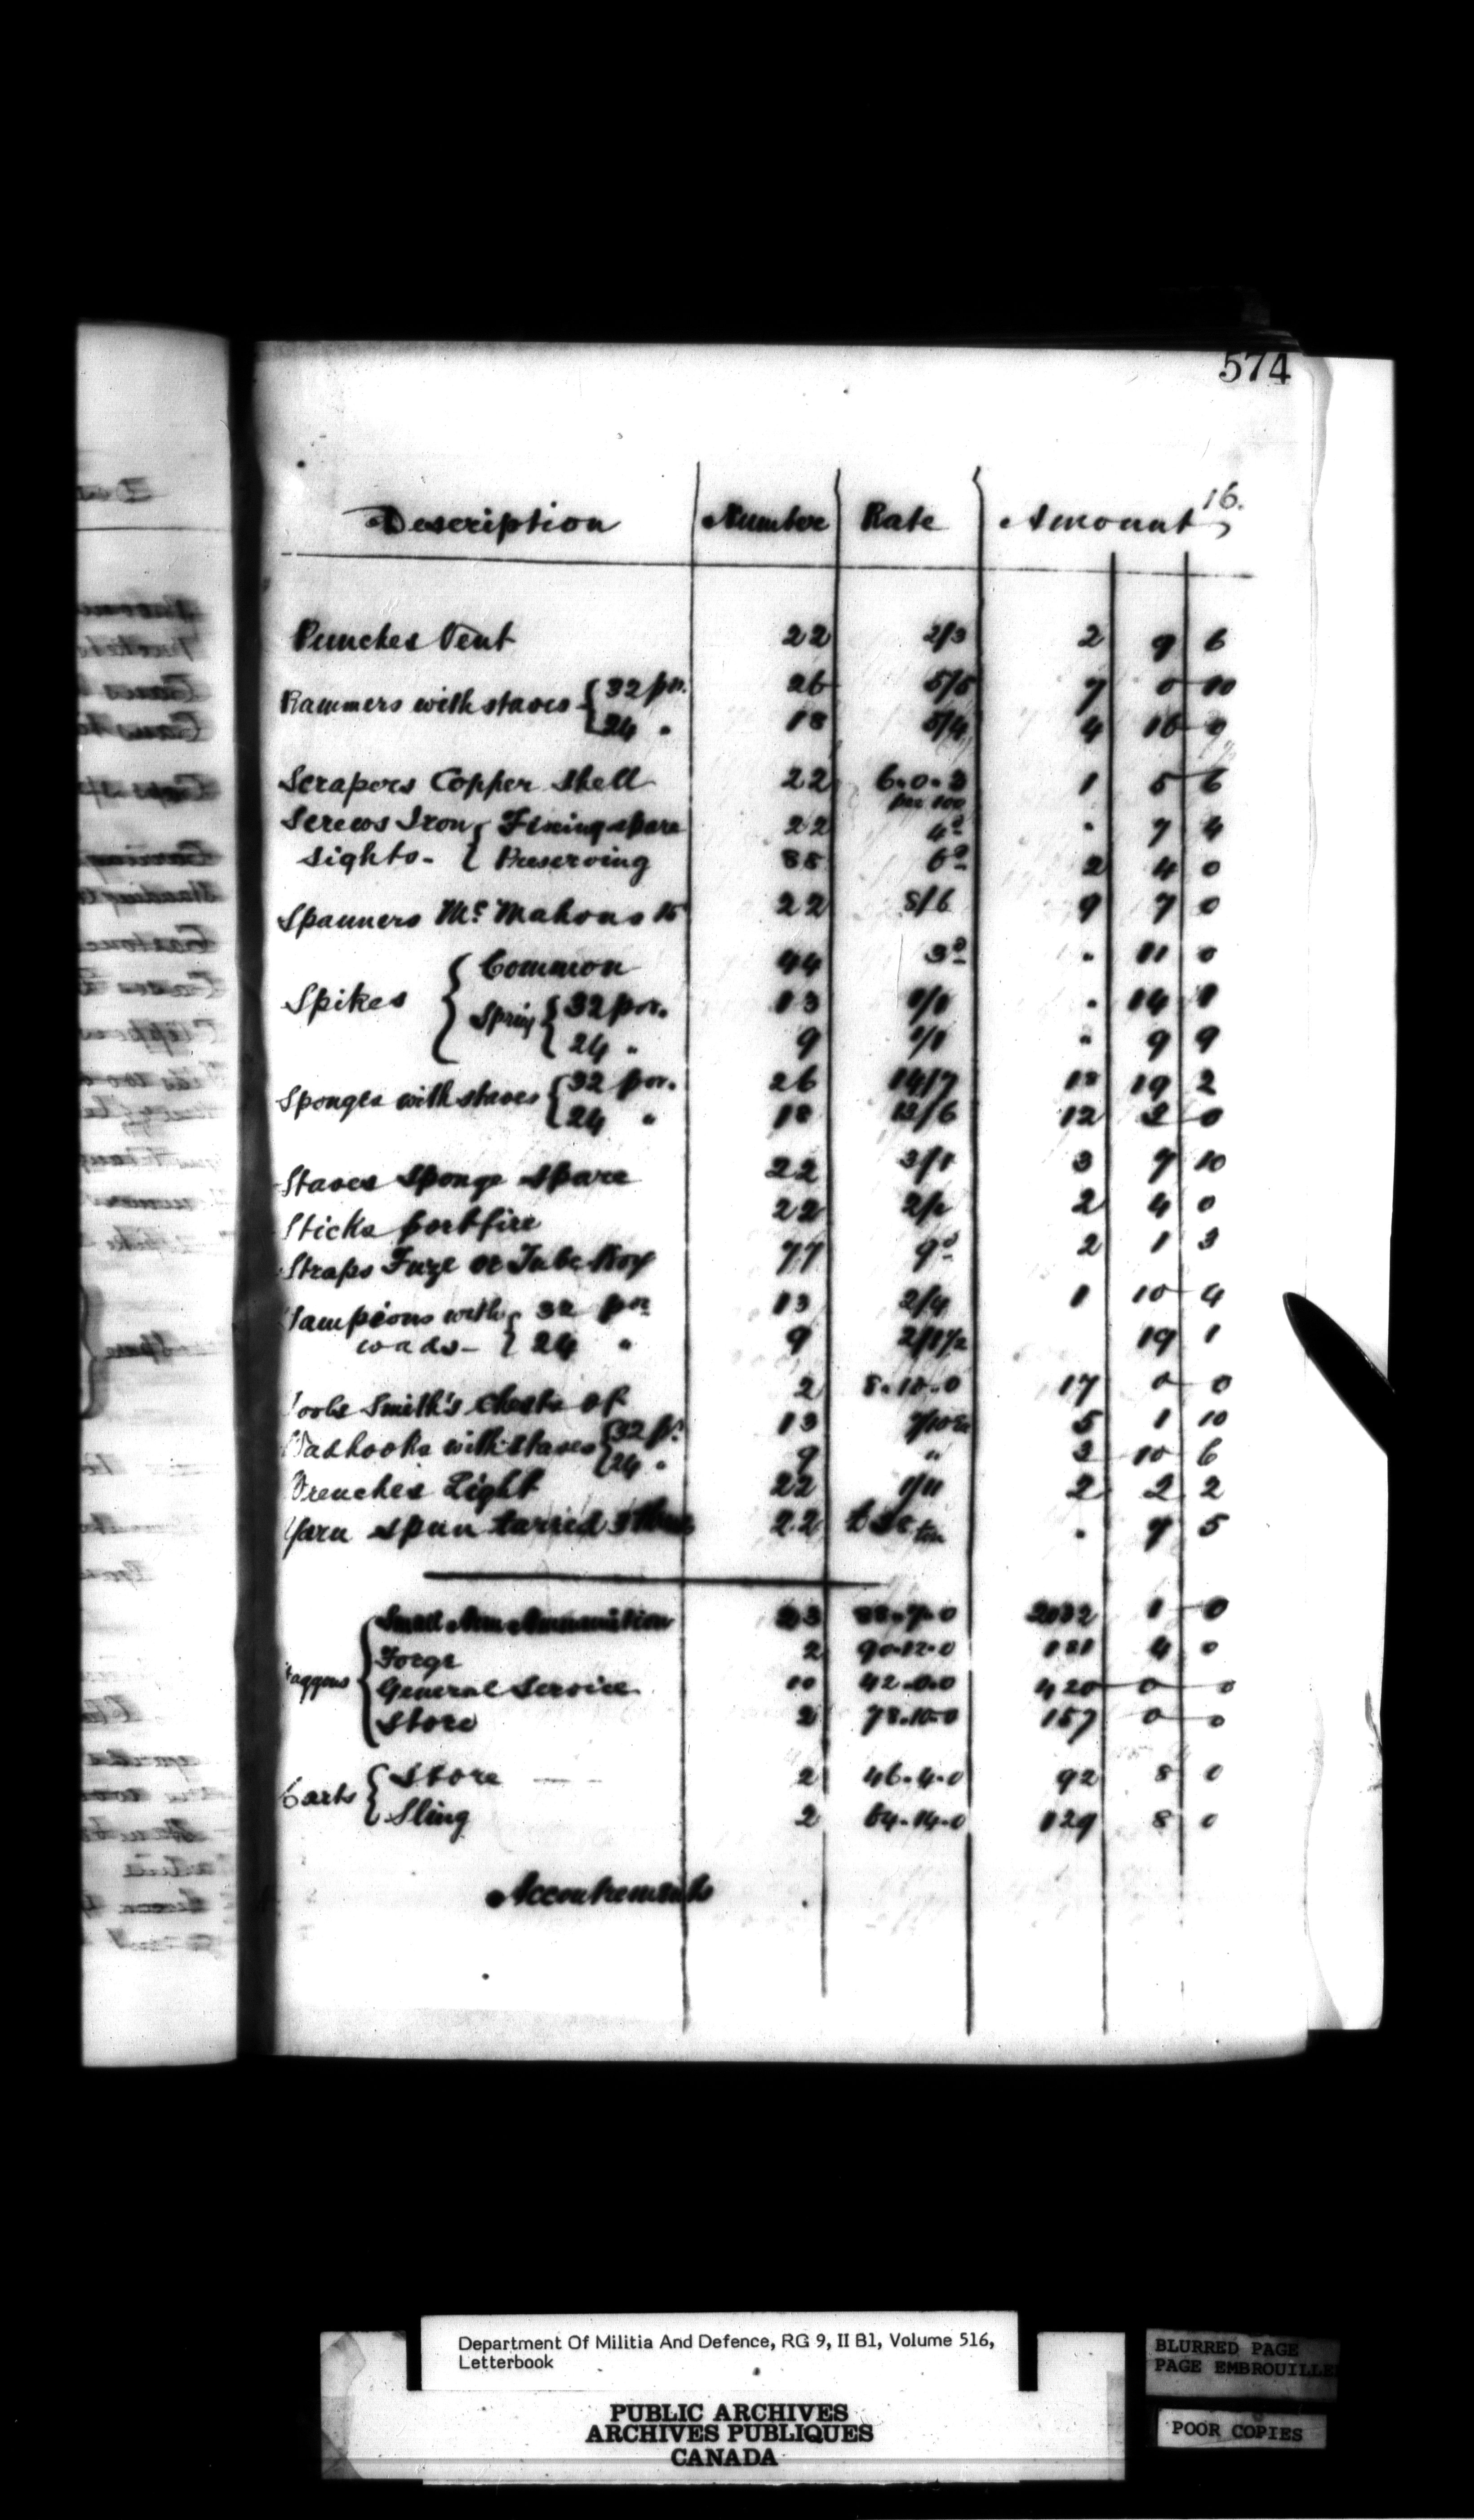 574
16.
Description Number Rate Amount
Punches Vent 22 2/3 2 9 6
Rammers with staves { 32 pr. 26 5/5 7 0 10
{ 24 " 18 5/4 4 16 0
Scrapers Copper Shell 22 6.0.3 per 100 1 5 6
Screws Iron { Fixing spare 22 4d " 7 4
Sights - { Preserving 88 6d 2 4 0
Spanners Mc Mahons 15 22 8/6 9 7 0
Spikes { Common 44 3d " 11 0
Spring { 32 por. 13 1/1 " 14 1
{ 24 " 9 1/1 " 9 9
Sponges with staves { 32 por. 26 14/7 18 19 2
{ 24 " 18 13/6 12 3 0
Staves Sponge Spare 22 3/1 3 7 10
Sticks portfire 22 2/- 2 4 0
Straps Fuze or Tube Box 77 9d 2 1 3
Tampions with { 32 pr 13 2/4 1 10 4
wads - { 24 " 9 2/1½ 19 1
Tools Smith's Chests of 2 8.10.0 17 0 0
Wadhooks with staves { 32 pr. 13 7/10 ea 5 1 10
{ 24 " 9 " 3 10 6
Wrenches Light 22 1/11 2 2 2
Yarn Spun tarred 22 ton " 7 5
Waggons { Small Arm Ammunition 23 88.7.0 2032 1 0
Forge 2 90.12.0 181 4 0
General Service 10 42.0.0 420 0 0
Store 2 78.10.0 157 0 0
Carts { Store 2 46.4.0 92 8 0
{ Sling 2 64.14.0 129 8 0
Accoutrements
Department Of Militia And Defence, RG 9, II B1, Volume 516,
Letterbook
PUBLIC ARCHIVES
ARCHIVES PUBLIQUES
CANADA
BLURRED PAGE
PAGE EMBROUILLE
POOR COPIES